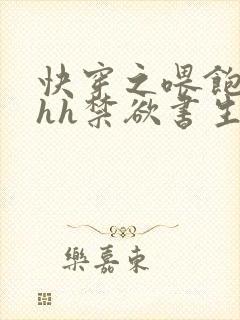 快穿之喂飽
hh禁欲書生
樂嘉東